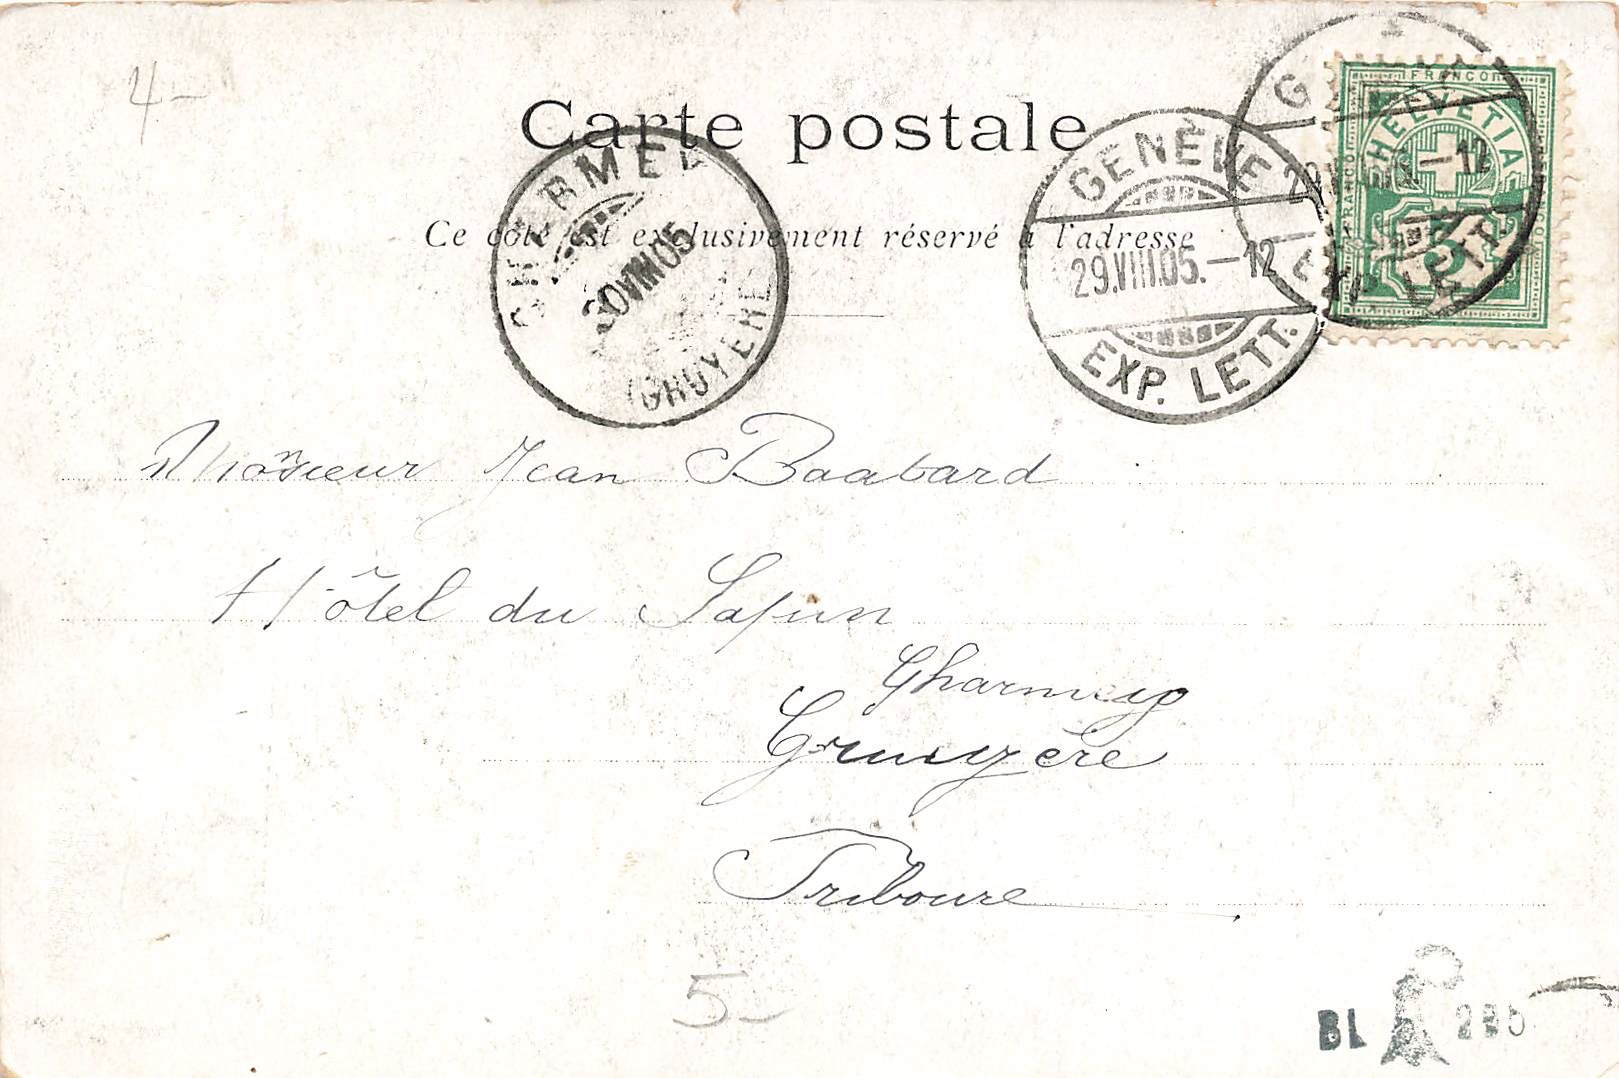 4-
Carte postale
Ce côté est exclusivement réservé à l'adresse
CHARMEY
30 VIII 05
(GRUYÈRE)
GENÈVE
29.VIII.05.-12
EXP. LETT.
FRANCO
HELVETIA
FRANCO
FRANCO
5
-12
EXP. LETT.
Monsieur Jean Baabard
Hôtel du Sapin
Charmey
Gruyère
Friboure
5-
BL